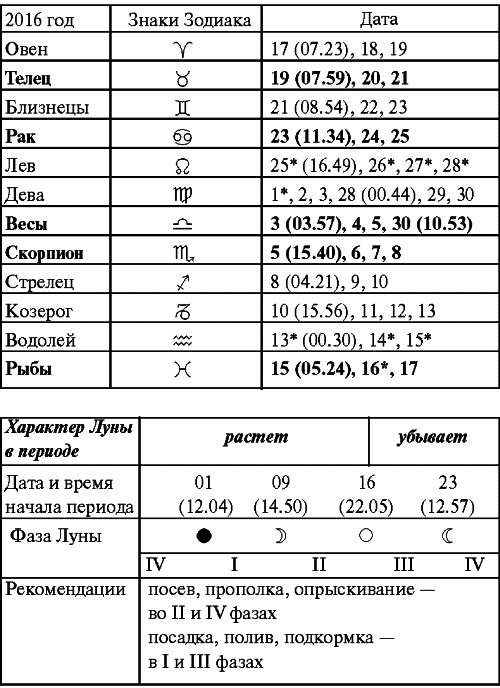 2016 год Знаки Зодиака Дата
Овен ♈ 17 (07.23), 18, 19
Телец ♉ 19 (07.59), 20, 21
Близнецы ♊ 21 (08.54), 22, 23
Рак ♋ 23 (11.34), 24, 25
Лев ♌ 25* (16.49), 26*, 27*, 28*
Дева ♍ 1*, 2, 3, 28 (00.44), 29, 30
Весы ♎ 3 (03.57), 4, 5, 30 (10.53)
Скорпион ♏ 5 (15.40), 6, 7, 8
Стрелец ♐ 8 (04.21), 9, 10
Козерог ♑ 10 (15.56), 11, 12, 13
Водолей ♒ 13* (00.30), 14*, 15*
Рыбы ♓ 15 (05.24), 16*, 17
Характер Луны
в периоде
растет убывает
Дата и время 01 09 16 23
начала периода (12.04) (14.50) (22.05) (12.57)
Фаза Луны ● ☽ ○ ☾
IV I II III IV
Рекомендации посев, прополка, опрыскивание —
во II и IV фазах
посадка, полив, подкормка —
в I и III фазах